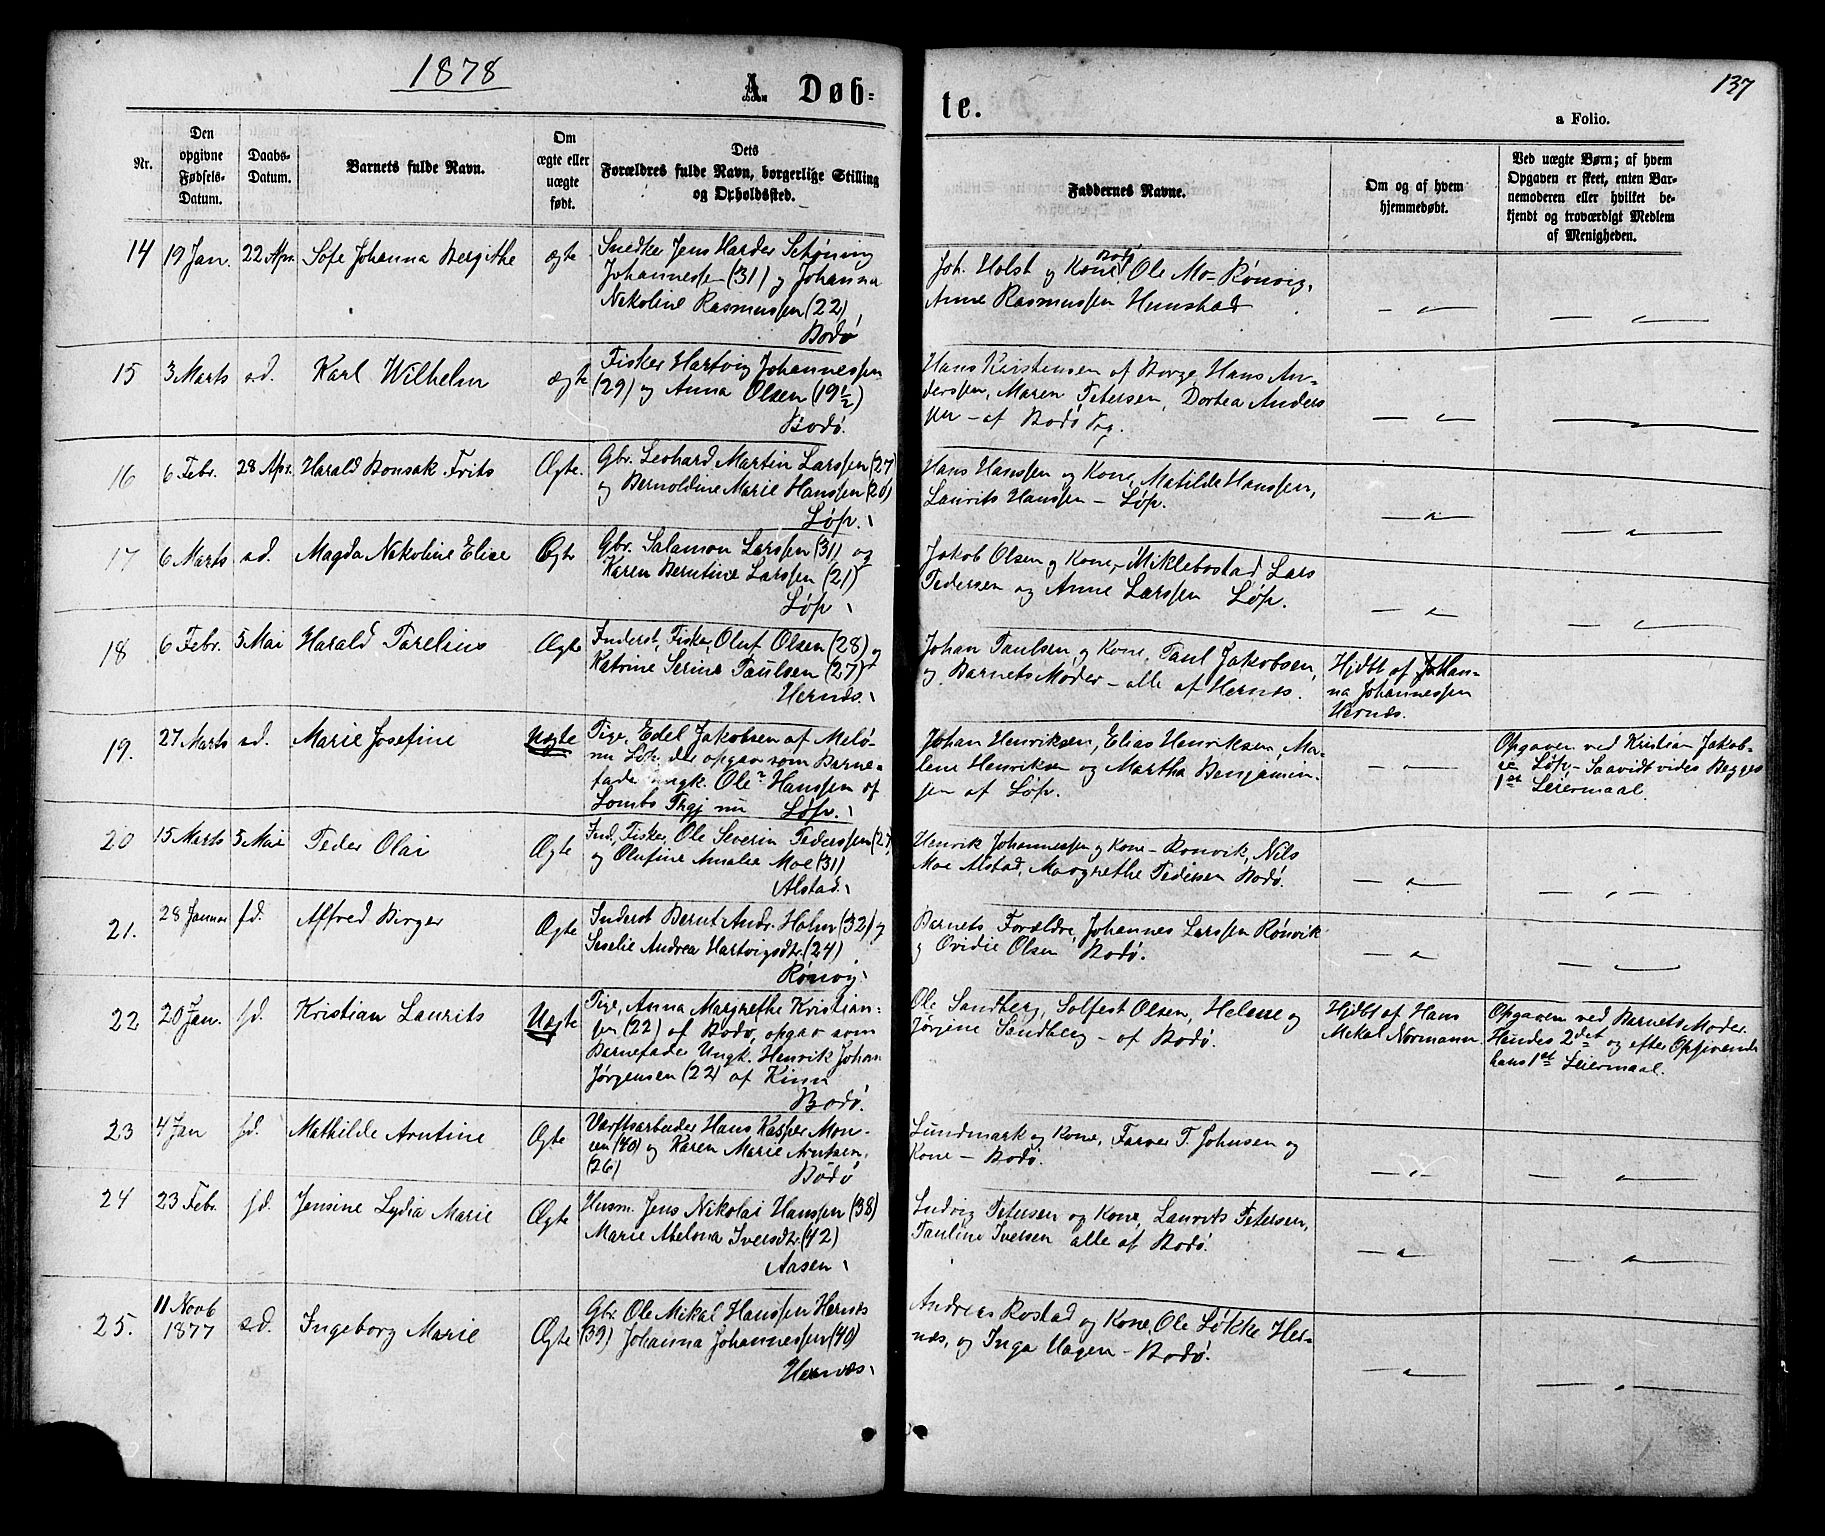 1878
A Døb-
te.
137
a Folio.
Nr.
Den
opgivne
Fødsels-
Datum.
Daabs-
Datum.
Barnets fulde Navn.
Om
ægte eller
uægte
født.
Dets
Forældres fulde Navn, borgerlige Stilling
og Opholdssted.
Faddernes Navne.
Om og af hvem
hjemmedøbt.
Ved uægte Børn; af hvem
Opgaven er skeet, enten Bar-
nemoderen eller hvilket be-
kjendt og troværdigt Medlem
af Menigheden.
14 19 Jan. 22 Apr. Sofe Johanna Bergithe ægte
Snedker Jens Harder Schøning
Johannessen (31) og Johanna
Nikoline Rasmussen (22)
Bodø
Joh. Holst og Kone Bodø, Ole Mo - Rønvig,
Anne Rasmussen Hunstad
15 3 Marts s.d. Karl Wilhelm ægte
Fisker Hartvig Johannessen
(29) og Anna Olsen (19 1/2)
Bodø.
Hans Kristensen af Borge, Hans An-
derssen, Maren Petersen, Dortea Anders
sen - af Bodø Pg.
16 6 Febr. 28 Apr. Harald Bonsak Frits Ægte.
Gbr. Leohard Martin Larssen (27)
og Bernoldine Marie Hanssen (20)
Løp.
Hans Hanssen og Kone, Matilde Hanssen,
Laurits Hanssen - Løp.
17 6 Marts s.d. Magda Nikoline Elise Ægte
Gbr. Salamon Larssen (31) og
Karen Berntine Larssen (21)
Løp
Jakob Olsen og Kone, - Miklebostad, Lars
Pedersen og Anne Larssen Løp.
18 6 Febr. 5 Mai Harald Parelius Ægte
Inderst, Fisker, Oluf Olsen (28) og
Katrine Serine Paulsen (27)
Hernes.
Johan Paulsen og Kone, Paul Jakobsen,
og Barnets Moder - alle af Hernes.
Hjdbt af Johan-
na Johannessen
Hernes.
19. 27 Marts s.d. Marie Josefine Uægte
Pige, Edel Jakobsen af Melø-
nu Løp der opgav som Barne-
fader Ungk. Ole Hanssen af
Lombs Prgj nu Løp.
Johan Henriksen, Elias Henriksen, Ma-
lene Henriksen og Martha Benjamin-
sen af Løp.
Opgaven ved Kristian Jakob-
Løp - Saavidt vides Begges
1ste Leiermaal.
20 15 Marts 5 Mai Peder Olai Ægte
Ind. Fisker, Ole Severin Pederssen (27)
og Olufine Amalie Moe (31)
Alstad.
Henrik Johannessen og Kone - Rønvik, Nils
Moe Alstad, Margrethe Pedersen Bodø.
21. 28 Januar s.d. Alfred Birger Ægte
Inderst Bernt Andr. Holm (32) og
Seselie Andrea Hartvigsdtr. (24)
Rønvig
Barnets Forældre, Johannes Larssen Rønvik
og Ovidie Olsen Bodø.
22 20 Jan. s.d. Kristian Laurits Uægte
Pige, Anna Margrethe Kristian-
sen (22) af Bodø, opgav som
Barnefader Ungk. Henrik Johan
Jørgensen (22) af Kinn
Bodø.
Ole Sandberg, Solfest Olsen, Helene og
Jørgine Sandberg - af Bodø.
Hjdbt af Hans
Mekal Normann.
Opgaven ved Barnets Moder.
Hendes 2det og efter Opgivende
hans 1ste Leiermaal.
23 4 Jan s.d. Mathilde Arntine Ægte
Værftsarbeider Hans Kasper Mon-
sen (40) og Karen Marie Arntsen,
(26)
Bodø
Lundmark og Kone, Farver T. Johnsen og
Kone - Bodø.
24 23 Febr. s.d. Jensine Lydia Marie Ægte
Husm. Jens Nikolai Hanssen (38)
Marie Abelona Iversdtr. (42)
Aasen
Ludvig Petersen og Kone, Laurits Petersen,
Pauline Iversen alle af Bodø.
25. 11 Novb
1877 s.d. Ingeborg Marie Ægte
Gbr. Ole Mikal Hanssen Hernes
(39) Johanna Johannessen (40)
Hernes
Andreas Rostad og Kone, Ole Løkke Her-
nes, og Inga Hagen - Bodø.